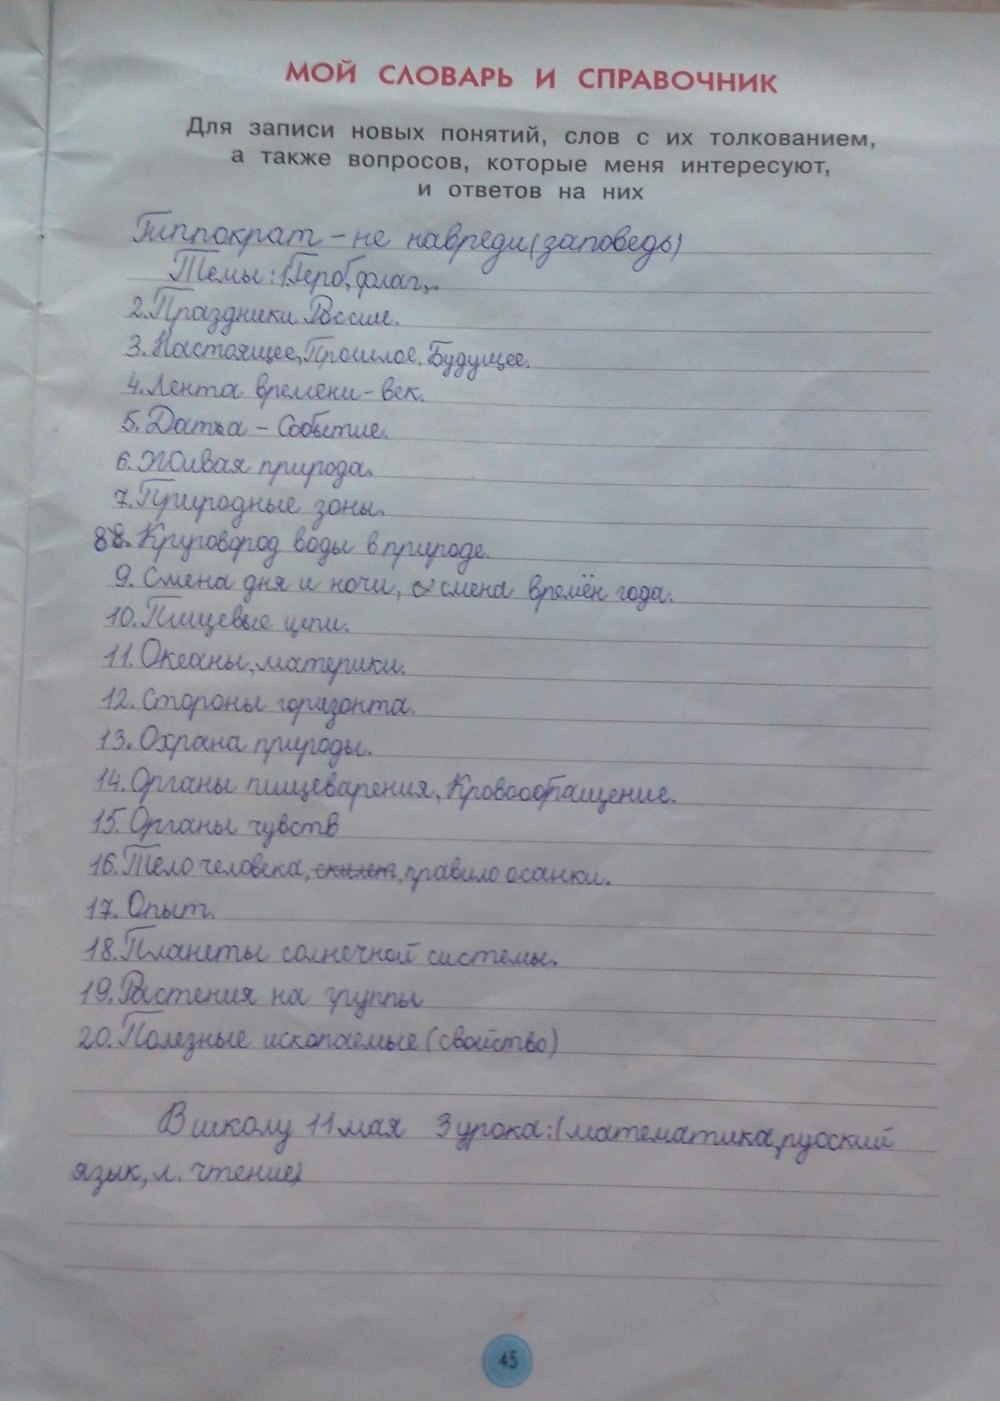 МОЙ СЛОВАРЬ И СПРАВОЧНИК
Для записи новых понятий, слов с их толкованием,
а также вопросов, которые меня интересуют,
и ответов на них
Гиппократ – не навреди (заповедь)
Темы: 1Герб, флаг,..
2.Праздники России.
3.Настоящее, Прошлое, Будущее.
4.Лента времени - век.
5.Дата - Событие.
6.Живая природа.
7.Природные зоны.
88.Круговород воды в природе.
9.Смена дня и ночи, смена времён года.
10.Пищевые цепи.
11.Океаны, материки.
12.Стороны горизонта.
13.Охрана природы.
14.Органы пищеварения, Кровоообращение.
15.Органы чувств
16.Тело человека, скилет, правило осанки.
17.Опыт.
18.Планеты солнечной системы.
19.Растения на группы
20.Полезные ископаемые (свойство)
В школу 11 мая 3 урока: (математика, руский
язык, л. чтение)
45